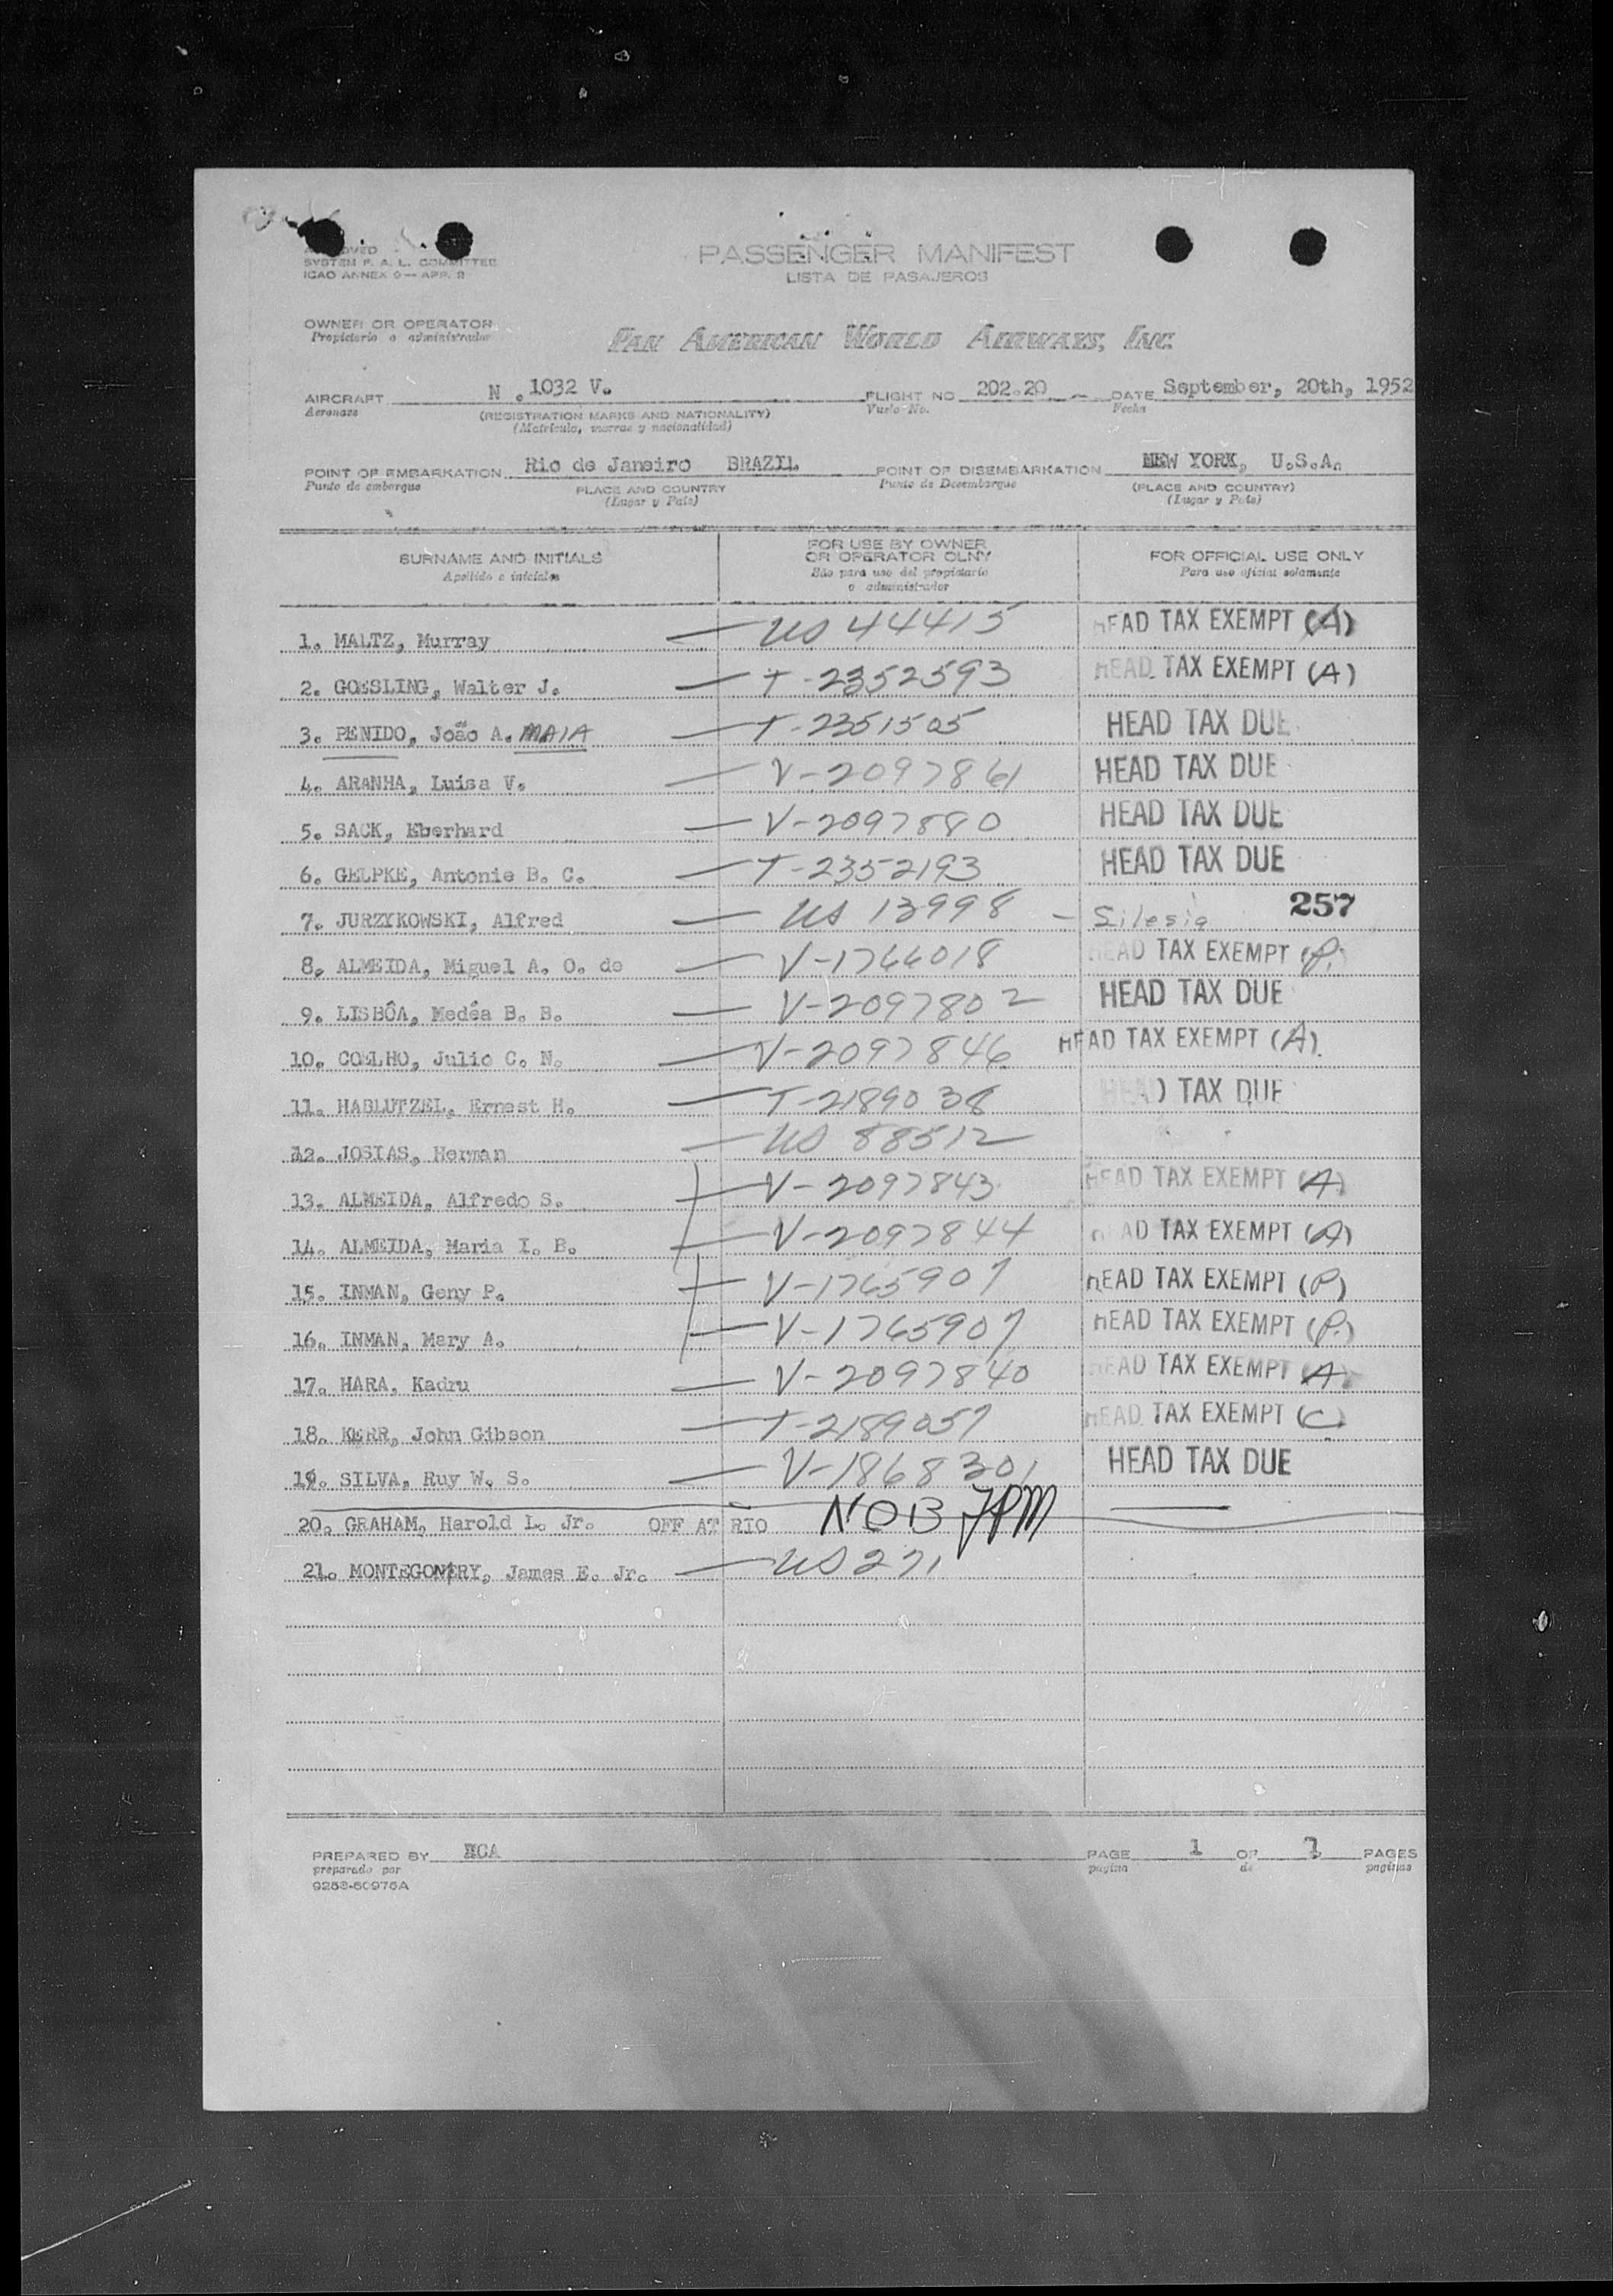 PASSENGER MANIFEST
LISTA DE PASAJEROS
SYSTEM F. A. L. COMMITTEE
ICAO ANNEX 9 — APP. 3
OWNER OR OPERATOR
Propietario o administrador
PAN AMERICAN WORLD AIRWAYS, INC.
AIRCRAFT N .1032 V. FLIGHT NO 202.20 DATE September, 20th, 1952
Aeronave (REGISTRATION MARKS AND NATIONALITY) Vuelo No. Fecha
(Matrícula, marcas y nacionalidad)
POINT OF EMBARKATION Rio de Janeiro BRAZIL POINT OF DISEMBARKATION NEW YORK, U.S.A.
Punto de embarque PLACE AND COUNTRY Punto de Desembarque (PLACE AND COUNTRY)
(Lugar y País) (Lugar y País)
SURNAME AND INITIALS FOR USE BY OWNER OR OPERATOR OLNY FOR OFFICIAL USE ONLY
Apellido e iniciales Sào para uso del propietario o administrador Para uso oficial solamente
1. MALTZ, Murray — US 44415 HEAD TAX EXEMPT (A)
2. GOESLING, Walter J. — T-2352593 HEAD TAX EXEMPT (A)
3. PENIDO, João A. MAIA — T-2351505 HEAD TAX DUE
4. ARANHA, Luisa V. — V-2097861 HEAD TAX DUE
5. SACK, Eberhard — V-2097880 HEAD TAX DUE
6. GELPKE, Antonie B. C. — T-2352193 HEAD TAX DUE
7. JURZYKOWSKI, Alfred — US 13998 — Silesia 257
8. ALMEIDA, Miguel A. O. de — V-1766018 HEAD TAX EXEMPT (P.)
9. LISBÔA, Medéa B. B. — V-2097802 HEAD TAX DUE
10. COELHO, Julio C. N. — V-2097846 HEAD TAX EXEMPT (A)
11. HABLUTZEL, Ernest H. — T-2189038 HEAD TAX DUE
12. JOSIAS, Herman — US 88512
13. ALMEIDA, Alfredo S. — V-2097843 HEAD TAX EXEMPT (A)
14. ALMEIDA, Maria I. B. — V-2097844 HEAD TAX EXEMPT (A)
15. INMAN, Geny P. — V-1765907 HEAD TAX EXEMPT (P)
16. INMAN, Mary A. — V-1765907 HEAD TAX EXEMPT (P.)
17. HARA, Kadru — V-2097840 HEAD TAX EXEMPT (A)
18. KERR, John Gibson — T-2189057 HEAD TAX EXEMPT (C)
19. SILVA, Ruy W. S. — V-1868301 HEAD TAX DUE
20. GRAHAM, Harold L. Jr. OFF AT RIO NOB JPM
21. MONTEGOMERY, James E. Jr. — US 271
PREPARED BY HCA PAGE 1 OF 7 PAGES
preparado por página de paginas
9253-50975A